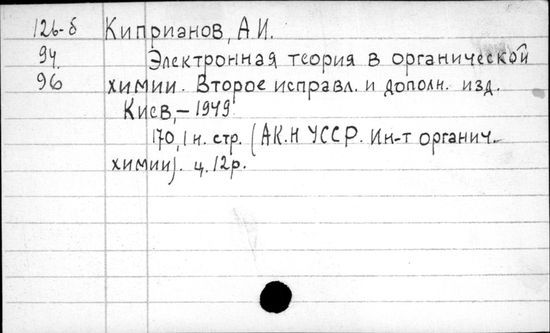 126-б Киприанов, А.И.
94 Электронная теория в органической
96 химии. Второе исправл. и дополн. изд.
Киев, – 1949
170, 1 н. стр. (АК.Н УССР. Ин-т органич.
химии). ц. 12р.